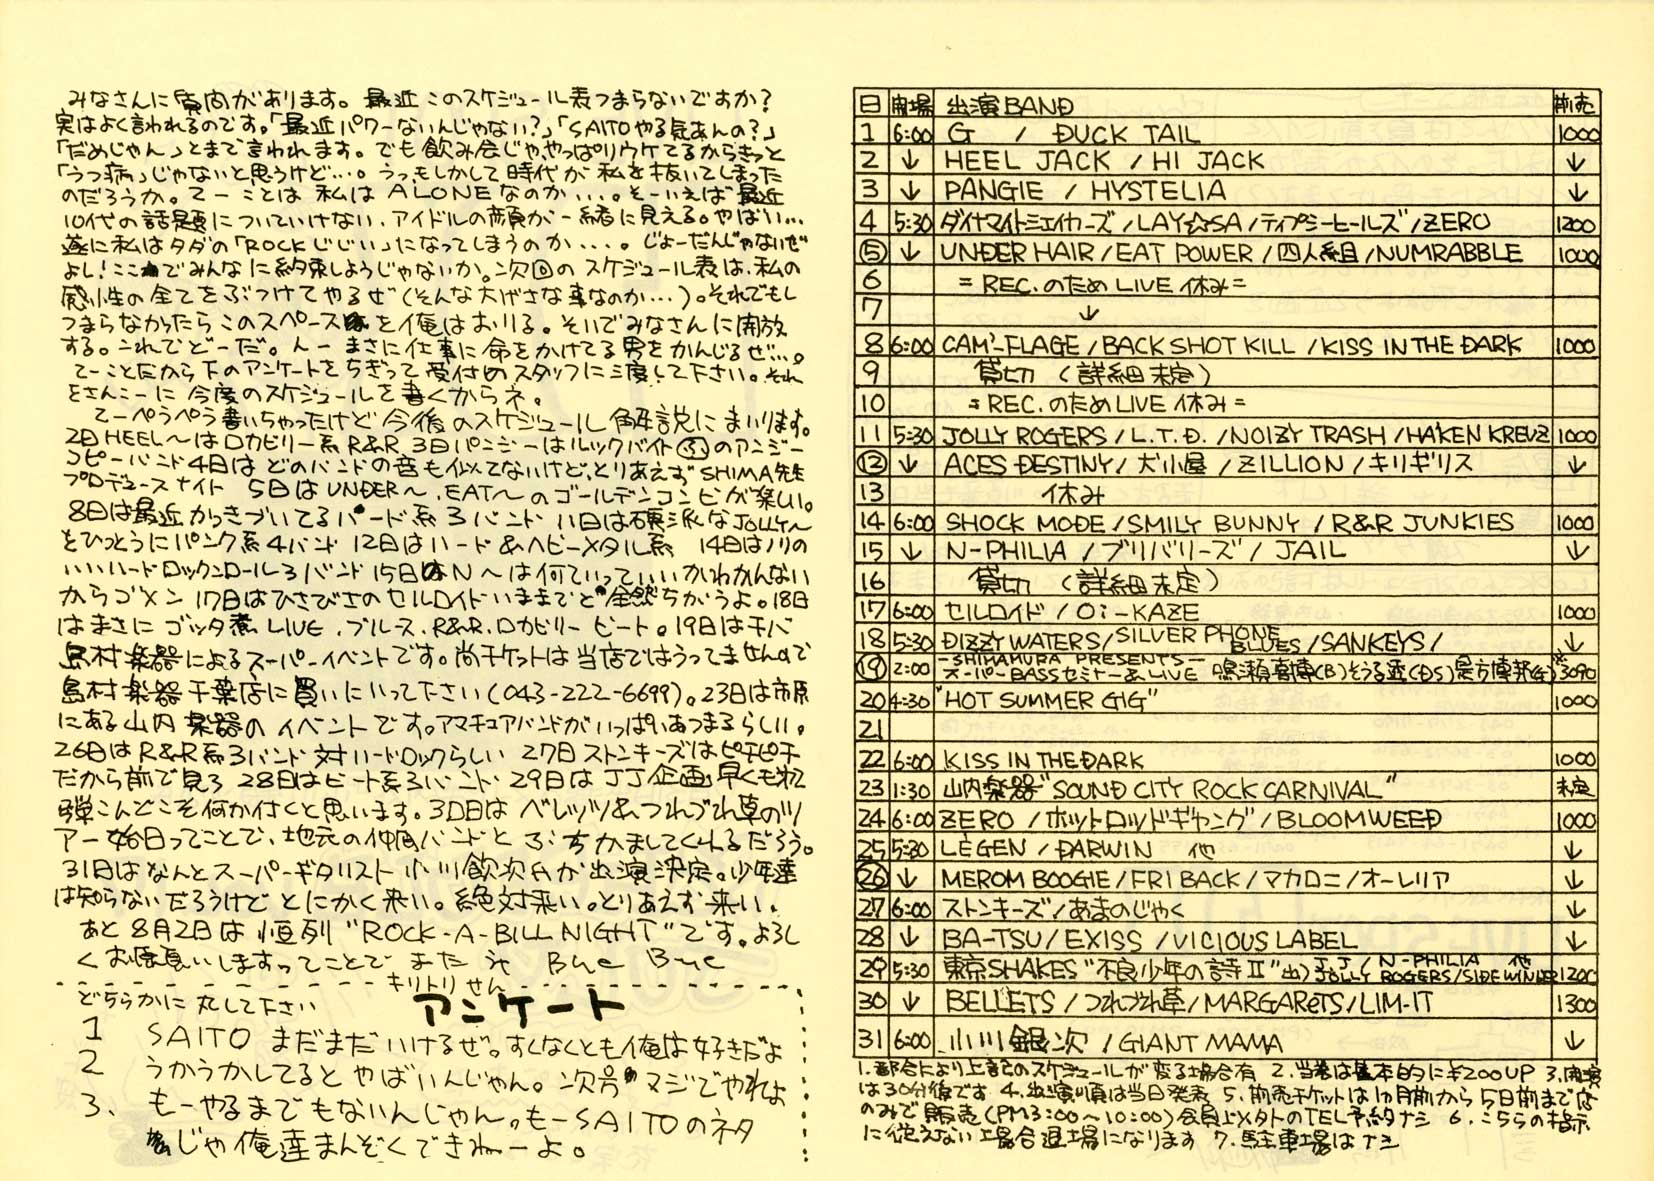 みなさんに質問があります。最近このスケジュール表つまらないですか?
実はよく言われるのです。「最近パワーないんじゃない?」「SAITOやる気あんの?」
「だめじゃん」とまで言われます。でも飲み会じゃ、やっぱりウケてるからきっと
「うつ病」じゃないと思うけど…。うっもしかして時代が私を抜いてしまった
のだろうか。てーことは私はALONEなのか…。そーいえば最近
10代の話題についていけない、アイドルの顔が一緒に見える。やばい…
遂に私はタダの「ROCKじじい」になってしまうのか・・・。じょーだんじゃないぜ
よし!ここでみんなに約束しようじゃないか。次回のスケジュール表は、私の
感性の全てをぶつけてやるぜ(そんな大げさな事なのか…)。それでもし
つまらなかったらこのスペースを俺はおりる。そいでみなさんに開放
する。これでどーだ。んーまさに仕事に命をかけてる男をかんじるぜ…。
てーことだから下のアンケートをちぎって受付のスタッフに渡して下さい。それ
をさんこーに今度のスケジュールを書くからネ。
てーぺらぺら書いちゃったけど今後のスケジュール解説にまいります。
2日HEEL〜はロカビリー系R&R 3日パンジーはルックバイトのアンジー
コピーバンド4日はどのバンドの音も似てないけど、とりあえずSHIMA先生
プロデュースナイト 5日はUNDER〜、EAT〜のゴールデンコンビが楽しい。
8日は最近かっきづいてるハード系3バンド 11日は硬派なJOLLY〜
をひっとうにパンク系4バンド 12日はハード&ヘビーメタル系 14日はノリの
いいハードロックンロール3バンド15日はN〜は何ていっていいかわかんない
からゴメン 17日はひさびさのセルロイドいままでと全然ちがうよ。18日
はまさにゴッタ煮LIVE、ブルース、R&R、ロカビリービート。19日は千バ
島村楽器によるスーパーイベントです。尚チケットは当店ではうってませんので
島村楽器千葉店に買いにいって下さい(043-222-6699)。23日は市原
にある山内楽器のイベントです。アマチュアバンドがいっぱいあつまるらしい。
26日はR&R系3バンド対ハードロックらしい 27日ストンキーズはピチピチ
だから前で見ろ 28日はビート系3バンド 29日はJJ企画早くも
弾こんどこそ何か付くと思います。30日はベレッツ&つれづれ草のツ
アー始日ってことで、地元の仲間バンドとぶちかましてくれるだろう。
31日はなんとスーパーギタリスト小川飲次氏が出演決定。少年達
は知らないだろうけどとにかく来い。絶対来い。とりあえず来い。
あと8月2日は恒例"ROCK-A-BILL NIGHT"です。よろし
くお願いしますってことでまたネ Bye Bye
キリトリせん
どちらかに丸して下さい アンケート
1 SAITOまだまだいけるぜ。すくなくとも俺は好きだよ
2 うかうかしてるとやばいんじゃん。次号マジでやれよ
3. もーやるまでもないんじゃん。もーSAITOのネタ
じゃ俺達まんぞくできねーよ。
日 開場 出演BAND 前売
1 6:00 G / DUCK TAIL 1000
2 ↓ HEEL JACK / HI JACK ↓
3 ↓ PANGIE / HYSTELIA ↓
4 5:30 ダイナマイトシェイカーズ/LAY☆SA/ティプシーヒールズ/ZERO 1200
⑤ ↓ UNDER HAIR/EAT POWER/四人組/NUMRABBLE 1000
6 =REC.のためLIVE休み=
7 ↓
8 6:00 CAM'-FLAGE/BACK SHOT KILL/KISS IN THE DARK 1000
9 貸切 (詳細未定)
10 =REC.のためLIVE休み=
11 5:30 JOLLY ROGERS/L.T.D./NOIZY TRASH/HAKEN KREUZ 1000
⑫ ↓ ACES DESTINY/犬小屋/ZILLION/キリギリス ↓
13 休み
14 6:00 SHOCK MODE/SMILY BUNNY/R&R JUNKIES 1000
15 ↓ N-PHILIA/ブリバリーズ/JAIL ↓
16 貸切 (詳細未定)
17 6:00 セルロイド/Oi-KAZE 1000
18 5:30 DIZZY WATERS/SILVER PHONE BLUES/SANKEYS/ ↓
⑲ 2:00 -SHIMAMURA PRESENTS- スーパーBASSセミナー&LIVE 鳴瀬喜博(B)そうる透(DS)是方博邦(G) 3090
20 4:30 "HOT SUMMER GIG" 1000
21
22 6:00 KISS IN THE DARK 1000
23 1:30 山内楽器"SOUND CITY ROCK CARNIVAL" 未定
24 6:00 ZERO/ホットロッドギャング/BLOOMWEED 1000
25 5:30 LEGEN/DARWIN 他 ↓
㉖ ↓ MEROM BOOGIE/FRI BACK/マカロニ/オーレリア ↓
27 6:00 ストンキーズ/あまのじゃく ↓
28 ↓ BA-TSU/EXISS/VICIOUS LABEL ↓
29 5:30 東京SHAKES"不良少年の詩Ⅱ"出)JJ/N-PHILIA 他 JOLLY ROGERS/SIDE WINDER 1200
30 ↓ BELLETS/つれづれ草/MARGARETS/LIM-IT 1300
31 6:00 小川銀次/GIANT MAMA ↓
1.都合により上記のスケジュールが変る場合有 2.当券は基本的に¥200UP 3.開演
は30分後です 4.出演順は当日発表 5.前売チケットは1ヵ月前から5日前まで店
のみで販売(PM3:00〜10:00)会員以外のTEL予約ナシ 6.こちらの指示
に従えない場合退場になります 7.駐車場はナシ